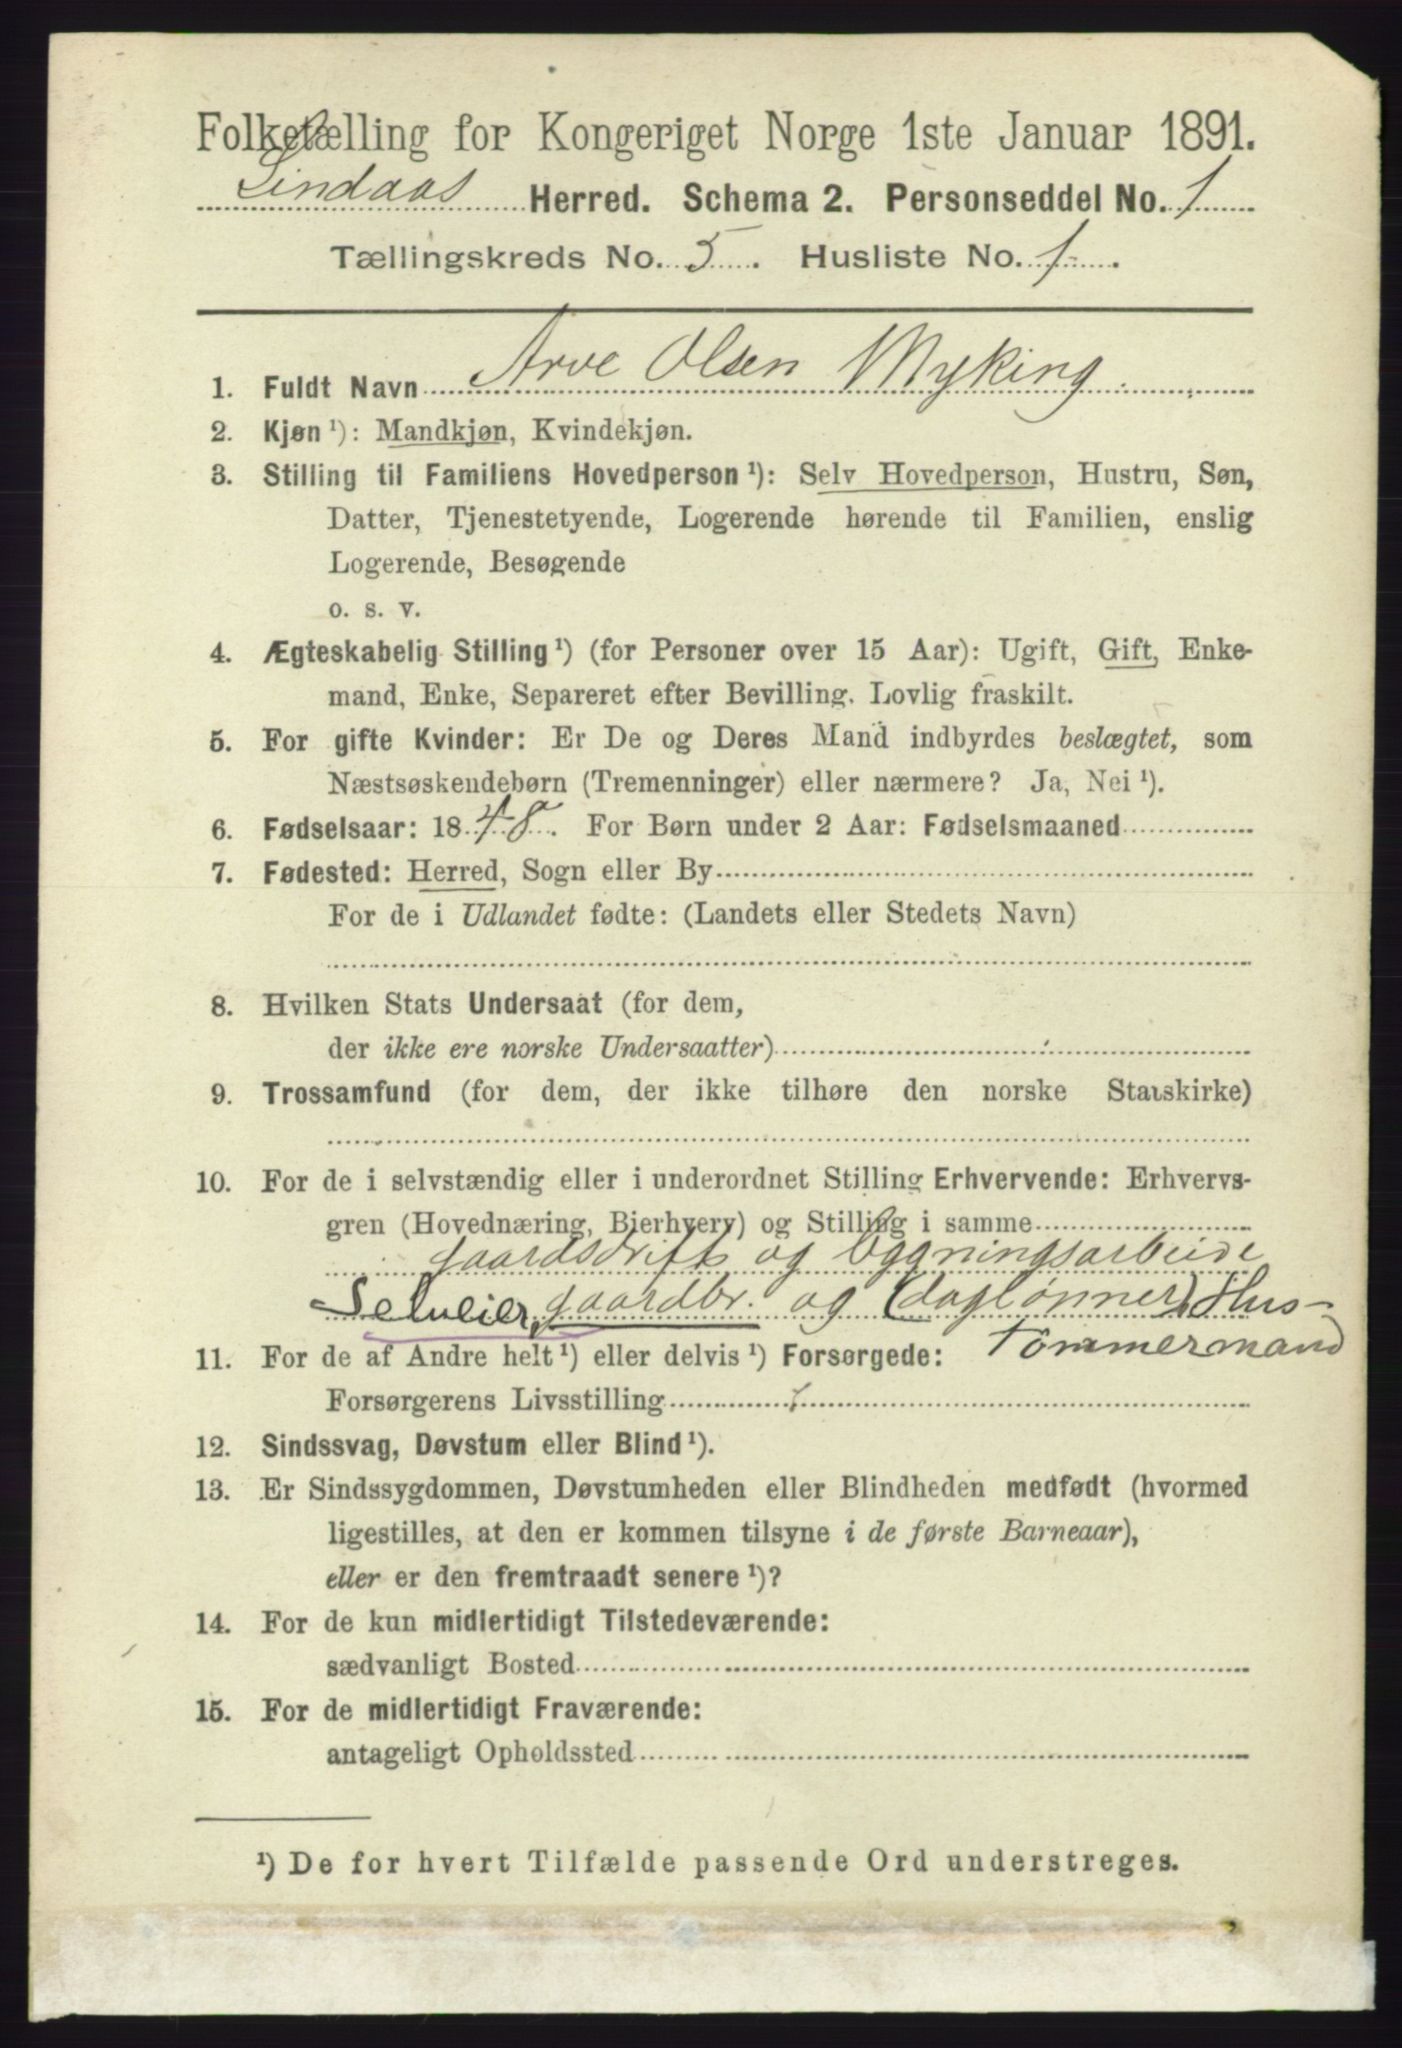 Folketælling for Kongeriget Norge 1ste Januar 1891.
Lindaas Herred. Schema 2. Personseddel No. 1
Tællingskreds No. 5. Husliste No. 1.
1. Fuldt Navn Arve Olsen Myking
2. Kjøn ¹): Mandkjøn, Kvindekjøn.
3. Stilling til Familiens Hovedperson ¹): Selv Hovedperson, Hustru, Søn,
Datter, Tjenestetyende, Logerende hørende til Familien, enslig
Logerende, Besøgende
o. s. v.
4. Ægteskabelig Stilling ¹) (for Personer over 15 Aar): Ugift, Gift, Enke-
mand, Enke, Separeret efter Bevilling. Lovlig fraskilt.
5. For gifte Kvinder: Er De og Deres Mand indbyrdes beslægtet, som
Næstsøskendebørn (Tremenninger) eller nærmere? Ja, Nei ¹).
6. Fødselsaar: 1848. For Børn under 2 Aar: Fødselsmaaned
7. Fødested: Herred, Sogn eller By
For de i Udlandet fødte: (Landets eller Stedets Navn)
8. Hvilken Stats Undersaat (for dem,
der ikke ere norske Undersaatter)
9. Trossamfund (for dem, der ikke tilhøre den norske Statskirke)
10. For de i selvstændig eller i underordnet Stilling Erhvervende: Erhvervs-
gren (Hovednæring, Bierhverv) og Stilling i samme
gaardsdrift og bygningsarbeide
Selveier, gaardbr. og (daglønner) Hus-
tømmermand
11. For de af Andre helt ¹) eller delvis ¹) Forsørgede:
Forsørgerens Livsstilling
12. Sindssvag, Døvstum eller Blind ¹).
13. Er Sindssygdommen, Døvstumheden eller Blindheden medfødt (hvormed
ligestilles, at den er kommen tilsyne i de første Barneaar),
eller er den fremtraadt senere ¹)?
14. For de kun midlertidigt Tilstedeværende:
sædvanligt Bosted
15. For de midlertidigt Fraværende:
antageligt Opholdssted
¹) De for hvert Tilfælde passende Ord understreges.